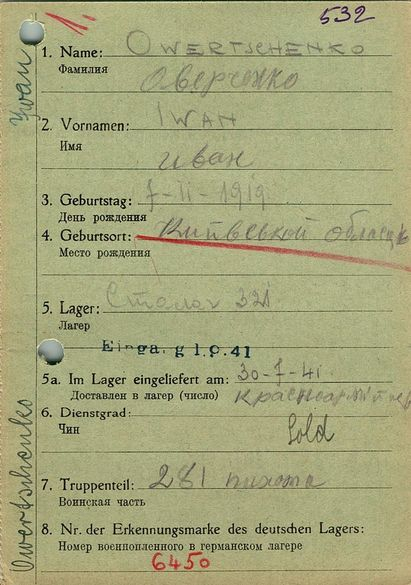 532
1. Name: OWERTSCHENKO
Фамилия Оверченко
2. Vornamen: IWAN
Имя Иван
3. Geburtstag: 7-II-1919
День рождения
4. Geburtsort: Київської области
Место рождения
5. Lager: Сталаг 321
Лагер
Einga.g 1.9.41
5a. Im Lager eingeliefert am: 30-7-41
Доставлен в лагер (число) Красноармеец
6. Dienstgrad:
Чин Sold
7. Truppenteil: 281 пихота
Воинская часть
8. Nr. der Erkennungsmarke des deutschen Lagers:
Номер военнопленного в германском лагере
6450
Owertschenko
Iwan